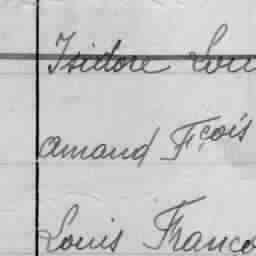 Isidore Lou
Amand Fçois
Louis Franço